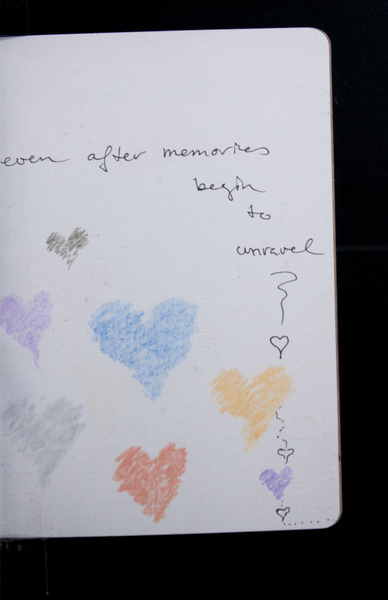 even after memories
begin
to
unravel